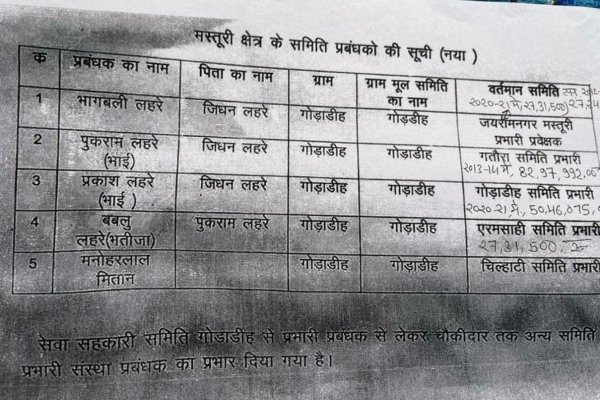 मस्तूरी क्षेत्र के समिति प्रबंधको की सूची (नया )
क प्रबंधक का नाम पिता का नाम ग्राम ग्राम मूल समिति का नाम वर्तमान समिति
2020-21 में, 27,31,500/
1 भागबली लहरे जिधन लहरे गोड़ाडीह गोड़ाडीह जयरामनगर मस्तूरी प्रभारी प्रवेक्षक
2 पुकराम लहरे (भाई) जिधन लहरे गोड़ाडीह गोड़ाडीह गतौरा समिति प्रभारी
2013-14 में, 82,97,992,00
3 प्रकाश लहरे (भाई ) जिधन लहरे गोड़ाडीह गोड़ाडीह गोड़ाडीह समिति प्रभारी
2020-21 में, 50,46,075,
4 बबलु लहरे(भतीजा) पुकराम लहरे गोड़ाडीह गोड़ाडीह एरमसाही समिति प्रभारी
27,31,500,
5 मनोहरलाल मितान गोड़ाडीह गोड़ाडीह चिल्हाटी समिति प्रभारी
सेवा सहकारी समिति गोड़ाडीह से प्रभारी प्रबधक से लेकर चौकीदार तक अन्य समिति
प्रभारी संस्था प्रबंधक का प्रभार दिया गया है।